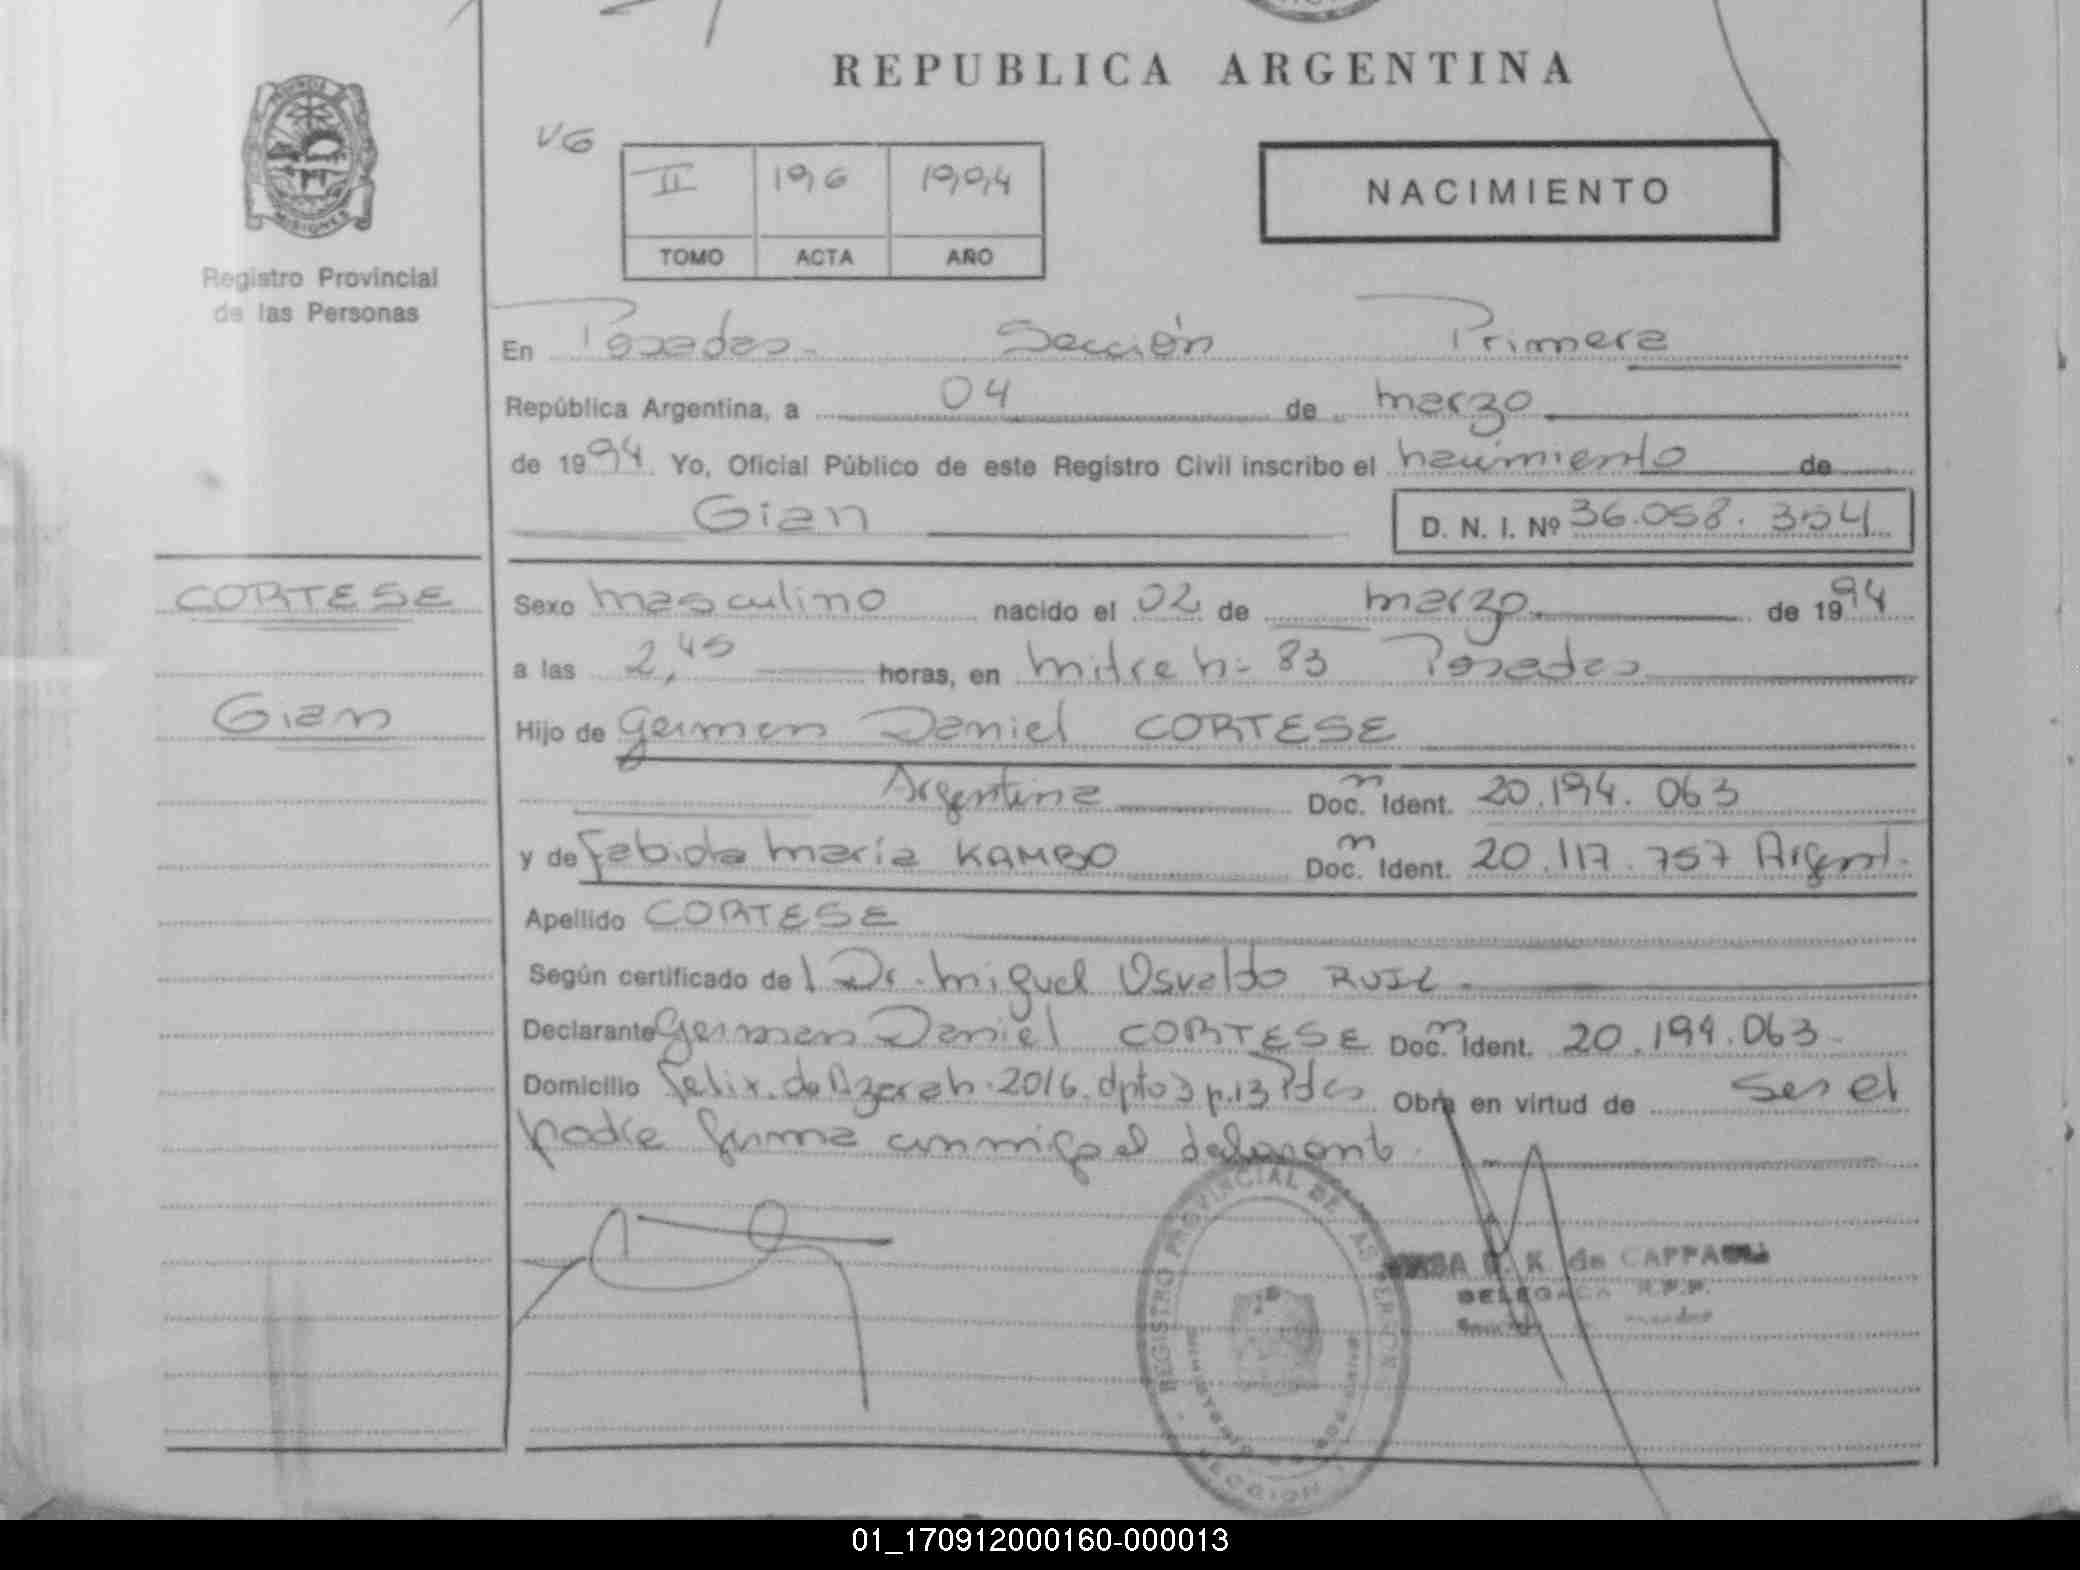 REPUBLICA ARGENTINA
VG
II 196 1994
TOMO ACTA AÑO
NACIMIENTO
MISIONES
Registro Provincial
de las Personas
En Posadas Sección Primera
República Argentina, a 04 de marzo
de 1994 Yo, Oficial Público de este Registro Civil inscribo el nacimiento de
Gian D. N. I. Nº 36.058.354
CORTESE
Gian
Sexo masculino nacido el 02 de marzo de 1994
a las 2,45 horas, en Mitre n= 83 Posadas
Hijo de German Daniel CORTESE
Argentina Doc. Ident. 20.194.063
y de Fabiola María KAMBO Doc. Ident. 20.117.757 Argent.
Apellido CORTESE
Según certificado del Dr. Miguel Osvaldo
Declarante German Daniel CORTESE Doc. Ident. 20.194.063
Domicilio Felix de Azara n. 2016 dpto 3 p.13 Pdas Obra en virtud de Ser el
padre firma conmigo el declarante
REGISTRO PROVINCIAL DE LAS PERSONAS
SECCION
K. de
DELEGADA R.P.P.
01_170912000160-000013